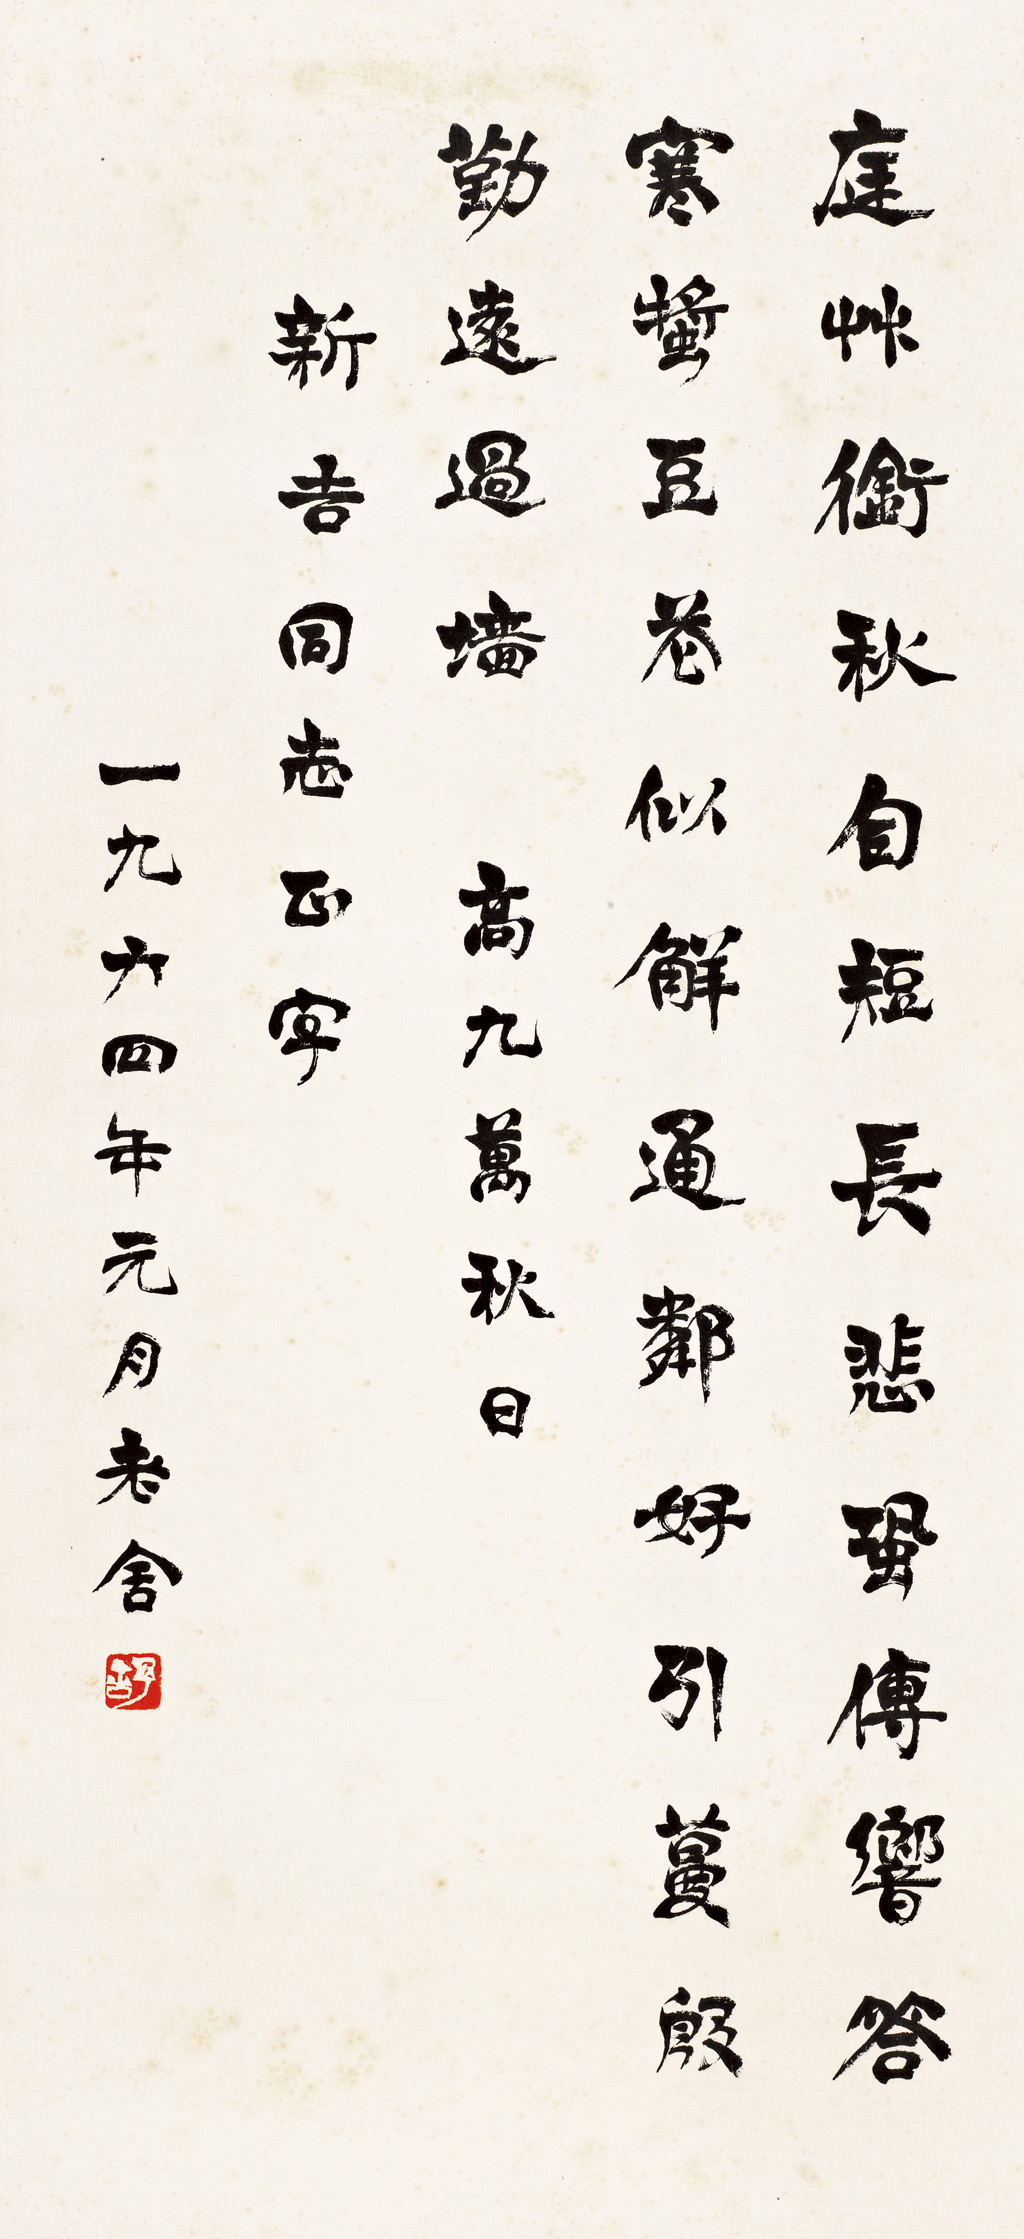 庭艸銜秋自短長悲蛩傳響答
寒螿豆花似解通鄰好引蔓殷
勤遠過墻　高九萬秋日
新吉同志正字
一九六四年元月老舍
舒